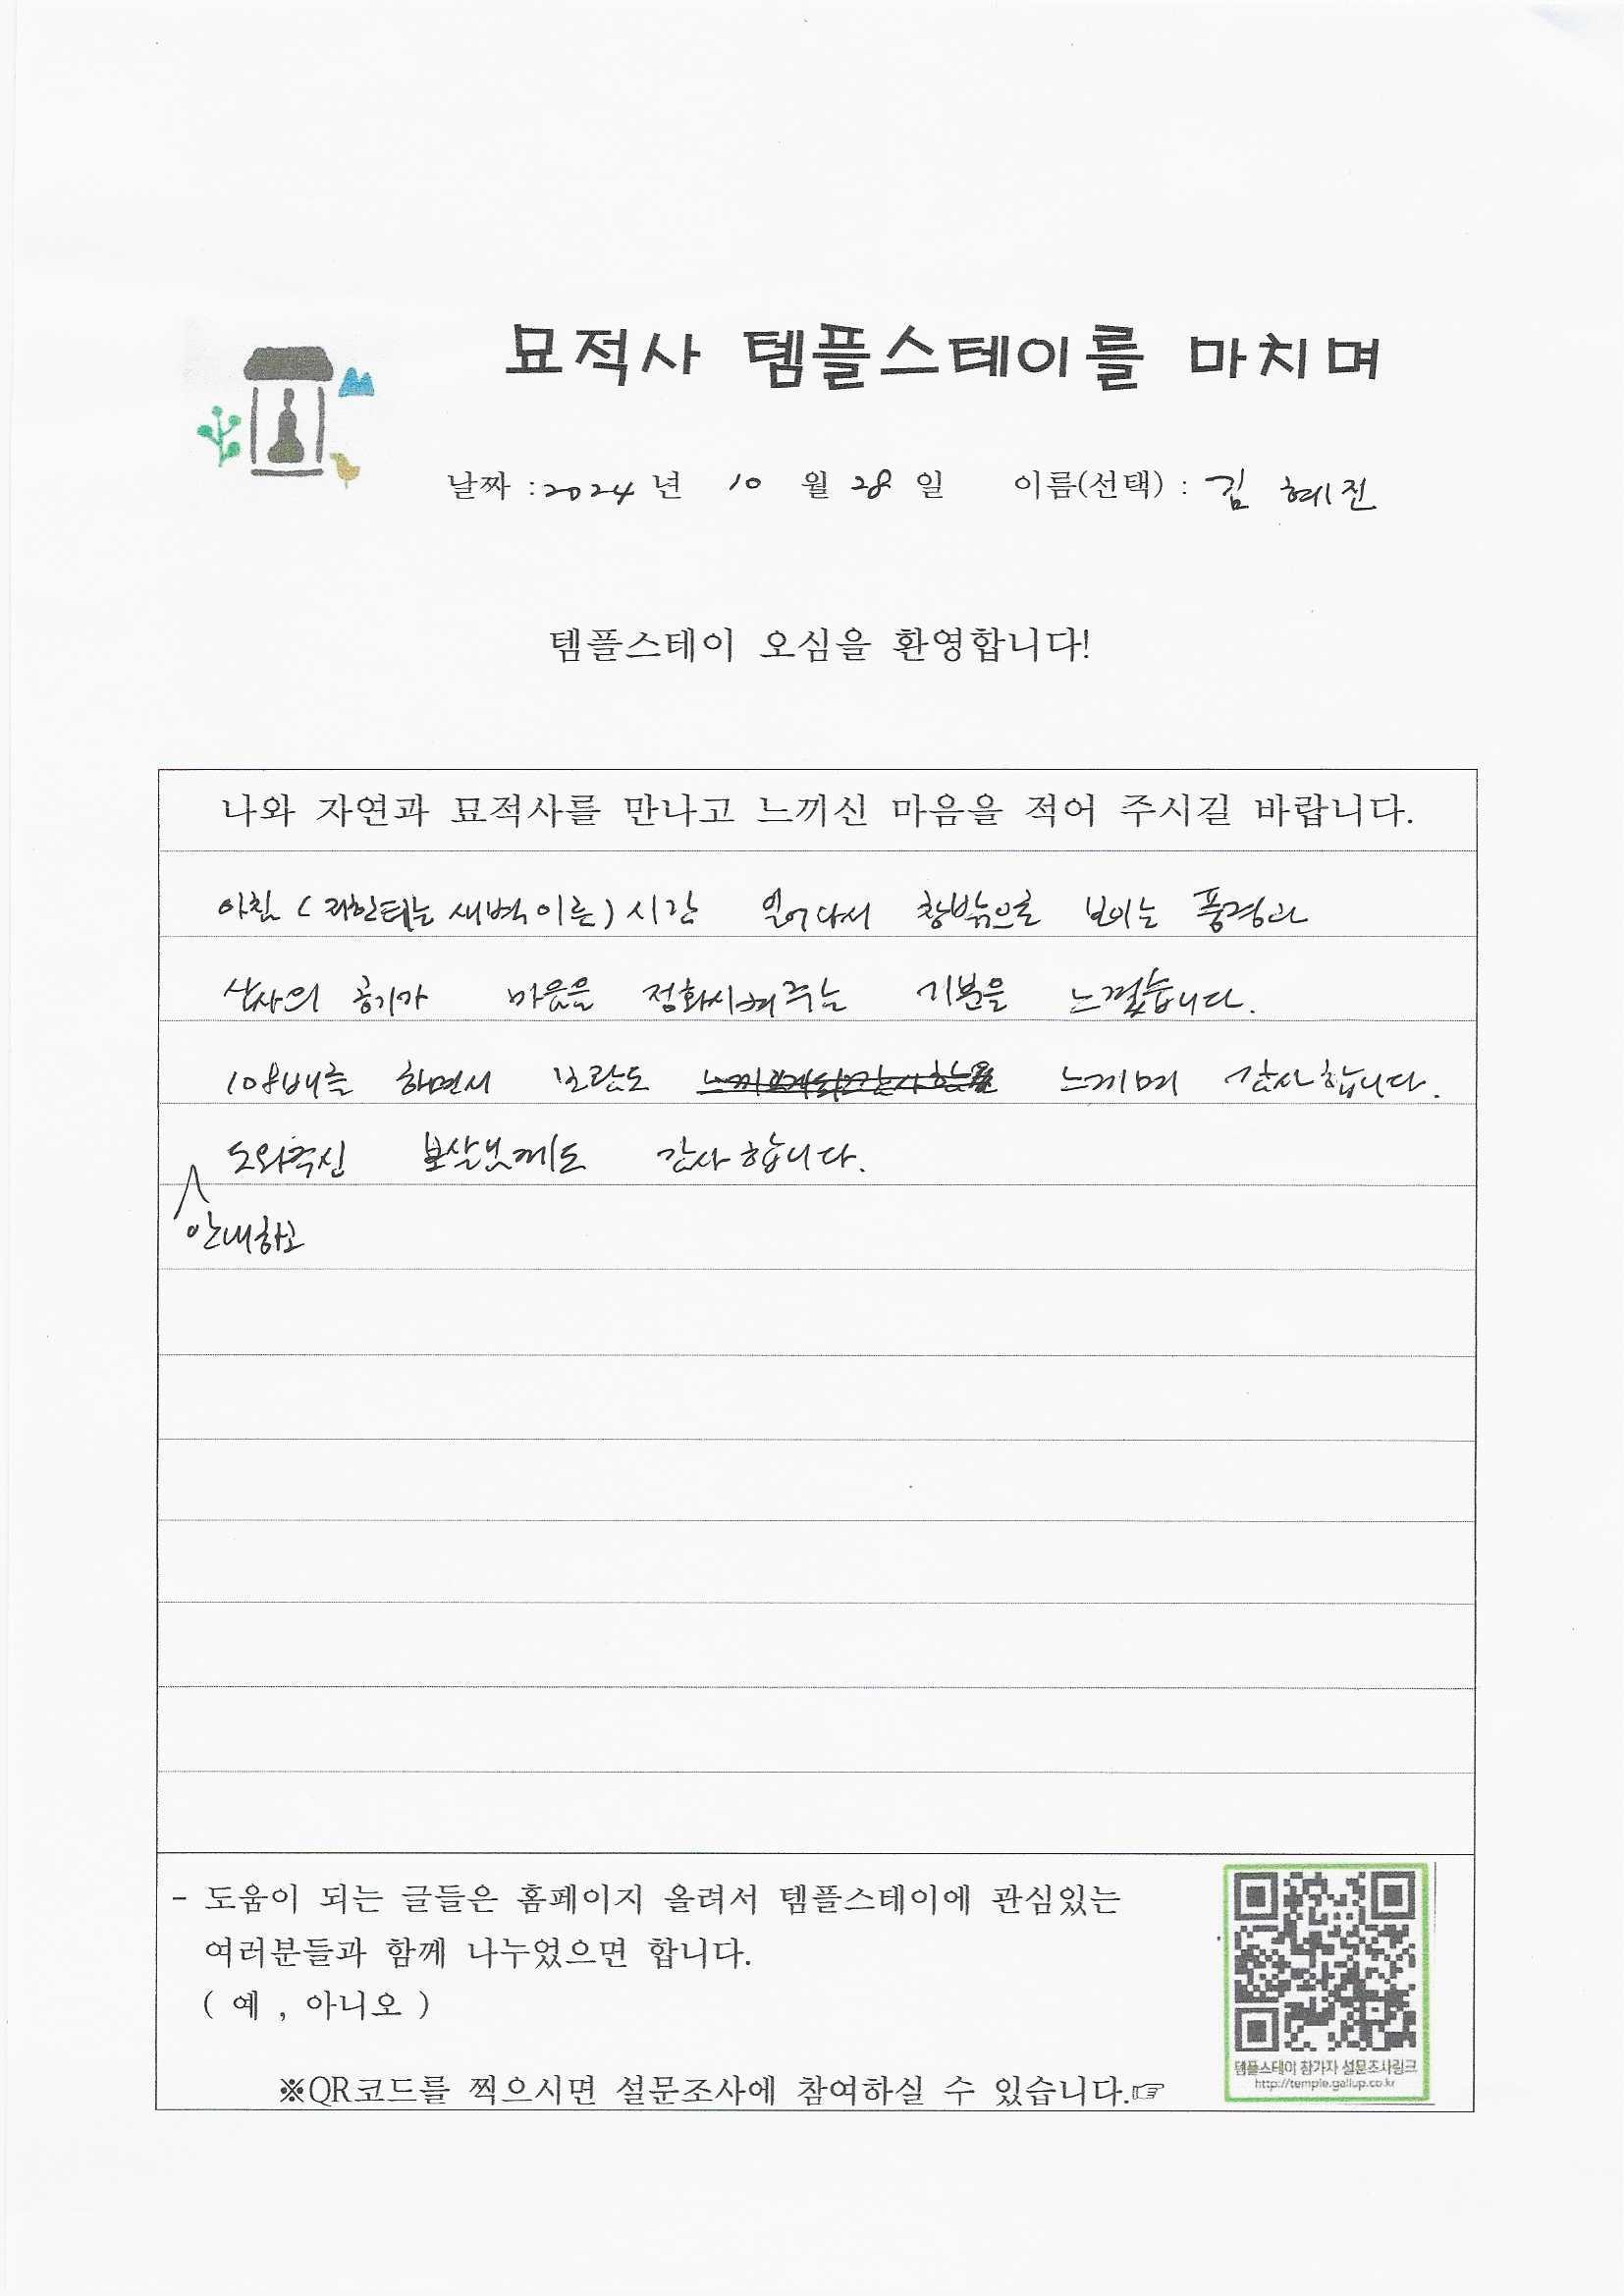 묘적사 템플스테이를 마치며
날짜 : 2024 년 10 월 28 일 이름(선택) : 김 혜진
템플스테이 오심을 환영합니다!
나와 자연과 묘적사를 만나고 느끼신 마음을 적어 주시길 바랍니다.
아침 (저한테는 새벽 이른) 시간 일어나서 창밖으로 보이는 풍경과
산사의 공기가 마음을 정화시켜주는 기분을 느꼈습니다.
108배를 하면서 보람도 느끼며 감사합니다.
도와주신 보살님께도 감사합니다.
안내하고
- 도움이 되는 글들은 홈페이지 올려서 템플스테이에 관심있는
여러분들과 함께 나누었으면 합니다.
( 예 , 아니오 )
※QR코드를 찍으시면 설문조사에 참여하실 수 있습니다.☞
템플스테이 참가자 설문조사링크
http://temple.gallup.co.kr